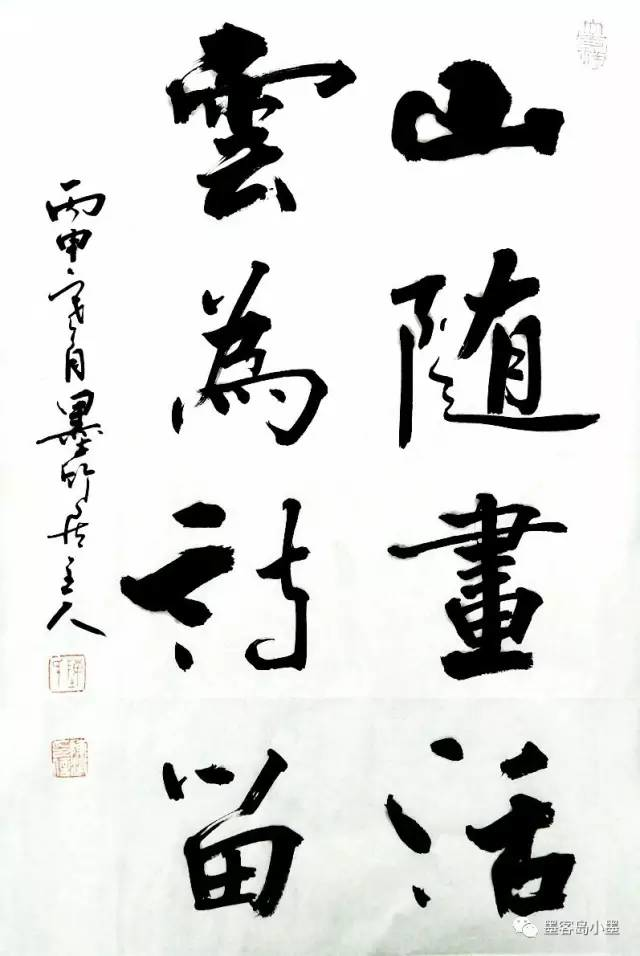 山随畫活
雲為詩留
丙申亥月墨竹居主人
墨客岛小墨